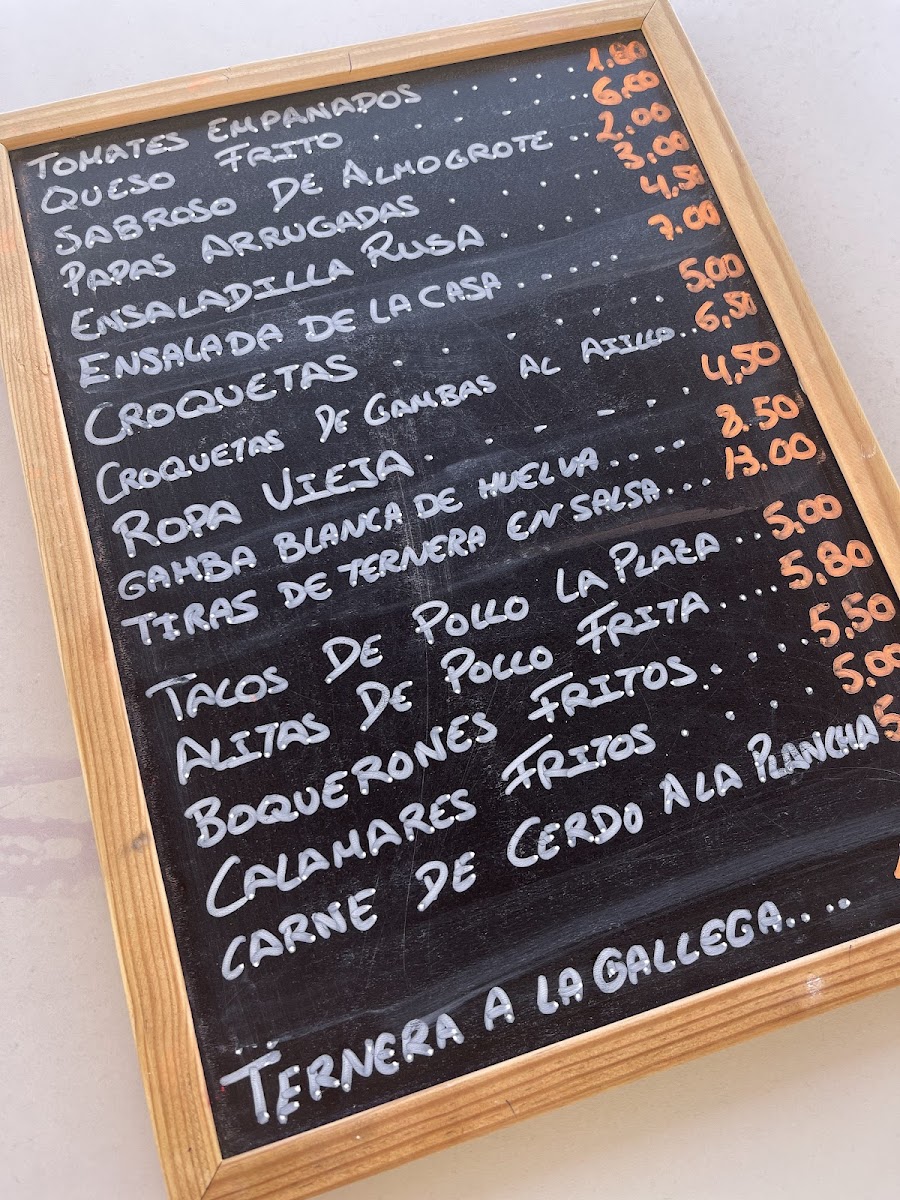 TOMATES EMPANADOS ..... 1.80
QUESO FRITO ....... 6.00
SABROSO DE ALMOGROTE .. 2.00
PAPAS ARRUGADAS ..... 3,00
ENSALADILLA RUSA .... 4,50
ENSALADA DE LA CASA ..... 7.00
CROQUETAS ....... 5,00
CROQUETAS DE GAMBAS AL AJILLO .. 6,50
ROPA VIEJA ....... 4,50
GAMBA BLANCA DE HUELVA .... 8.50
TIRAS DE TERNERA EN SALSA ... 13.00
TACOS DE POLLO LA PLAZA .. 5,00
ALITAS DE POLLO FRITA .... 5.80
BOQUERONES FRITOS .... 5,50
CALAMARES FRITOS .... 5,00
CARNE DE CERDO A LA PLANCHA 5
TERNERA A LA GALLEGA ....